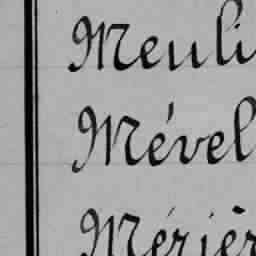 Meuli
Mével
Mérièr